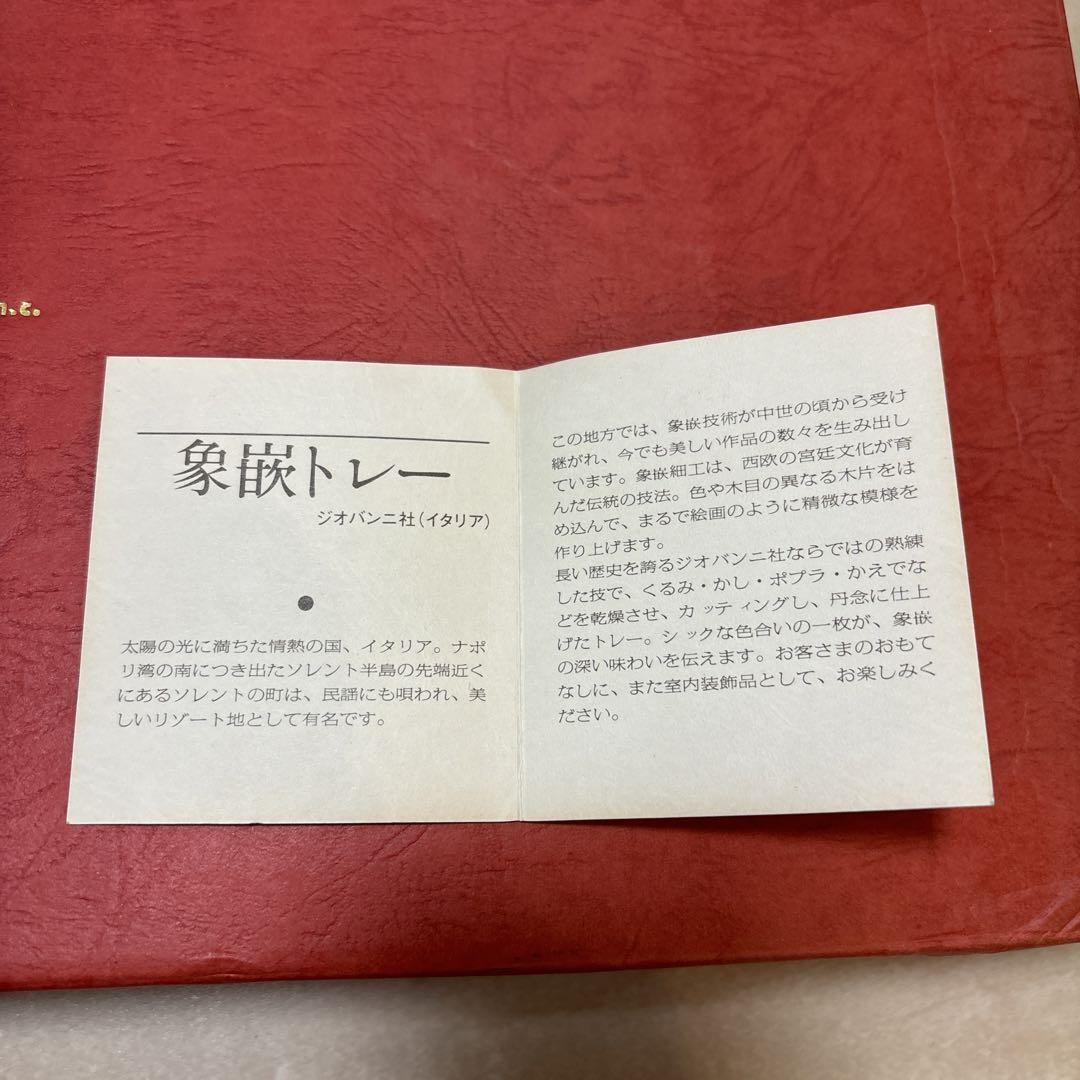 n.c.
象嵌トレー
ジオバンニ社(イタリア)
●
太陽の光に満ちた情熱の国、イタリア。ナポ
リ湾の南につき出たソレント半島の先端近く
にあるソレントの町は、民謡にも唄われ、美
しいリゾート地として有名です。
この地方では、象嵌技術が中世の頃から受け
継がれ、今でも美しい作品の数々を生み出し
ています。象嵌細工は、西欧の宮廷文化が育
んだ伝統の技法。色や木目の異なる木片をは
め込んで、まるで絵画のように精微な模様を
作り上げます。
長い歴史を誇るジオバンニ社ならではの熟練
した技で、くるみ・かし・ポプラ・かえでな
どを乾燥させ、カッティングし、丹念に仕上
げたトレー。シックな色合いの一枚が、象嵌
の深い味わいを伝えます。お客さまのおもて
なしに、また室内装飾品として、お楽しみく
ださい。